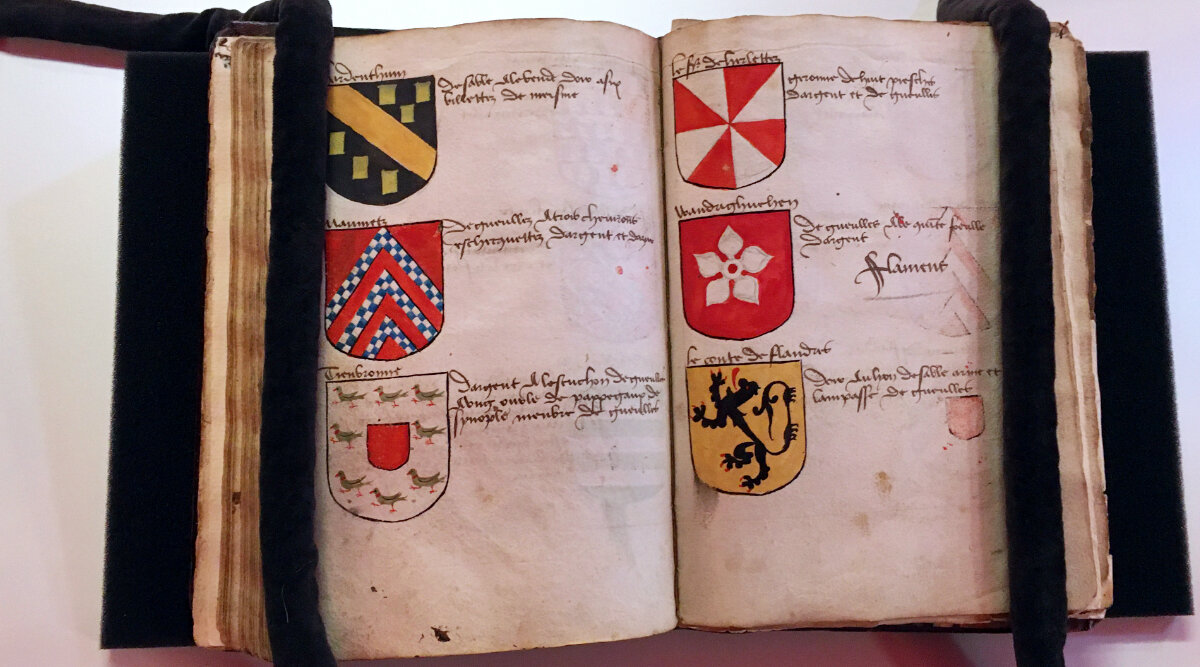 Ardenthum
de sable A le bend dor A six
billettes de mesme
Maumetz
De gueulles A trois cheuirons
eschecquettes dargent et dazur
Tienbronne
Dargent A lescuchon de gueulle
Vong ourle de pappegaux de
synople menbre de gueulles
geronne de huit piesches
dargent et de gueulles
Wandrighuehen
De gueulles A le quinte foeulle
Dargent
Flament
le conte de flandres
Dor A ulion de sable arme et
lampasse de gueulles